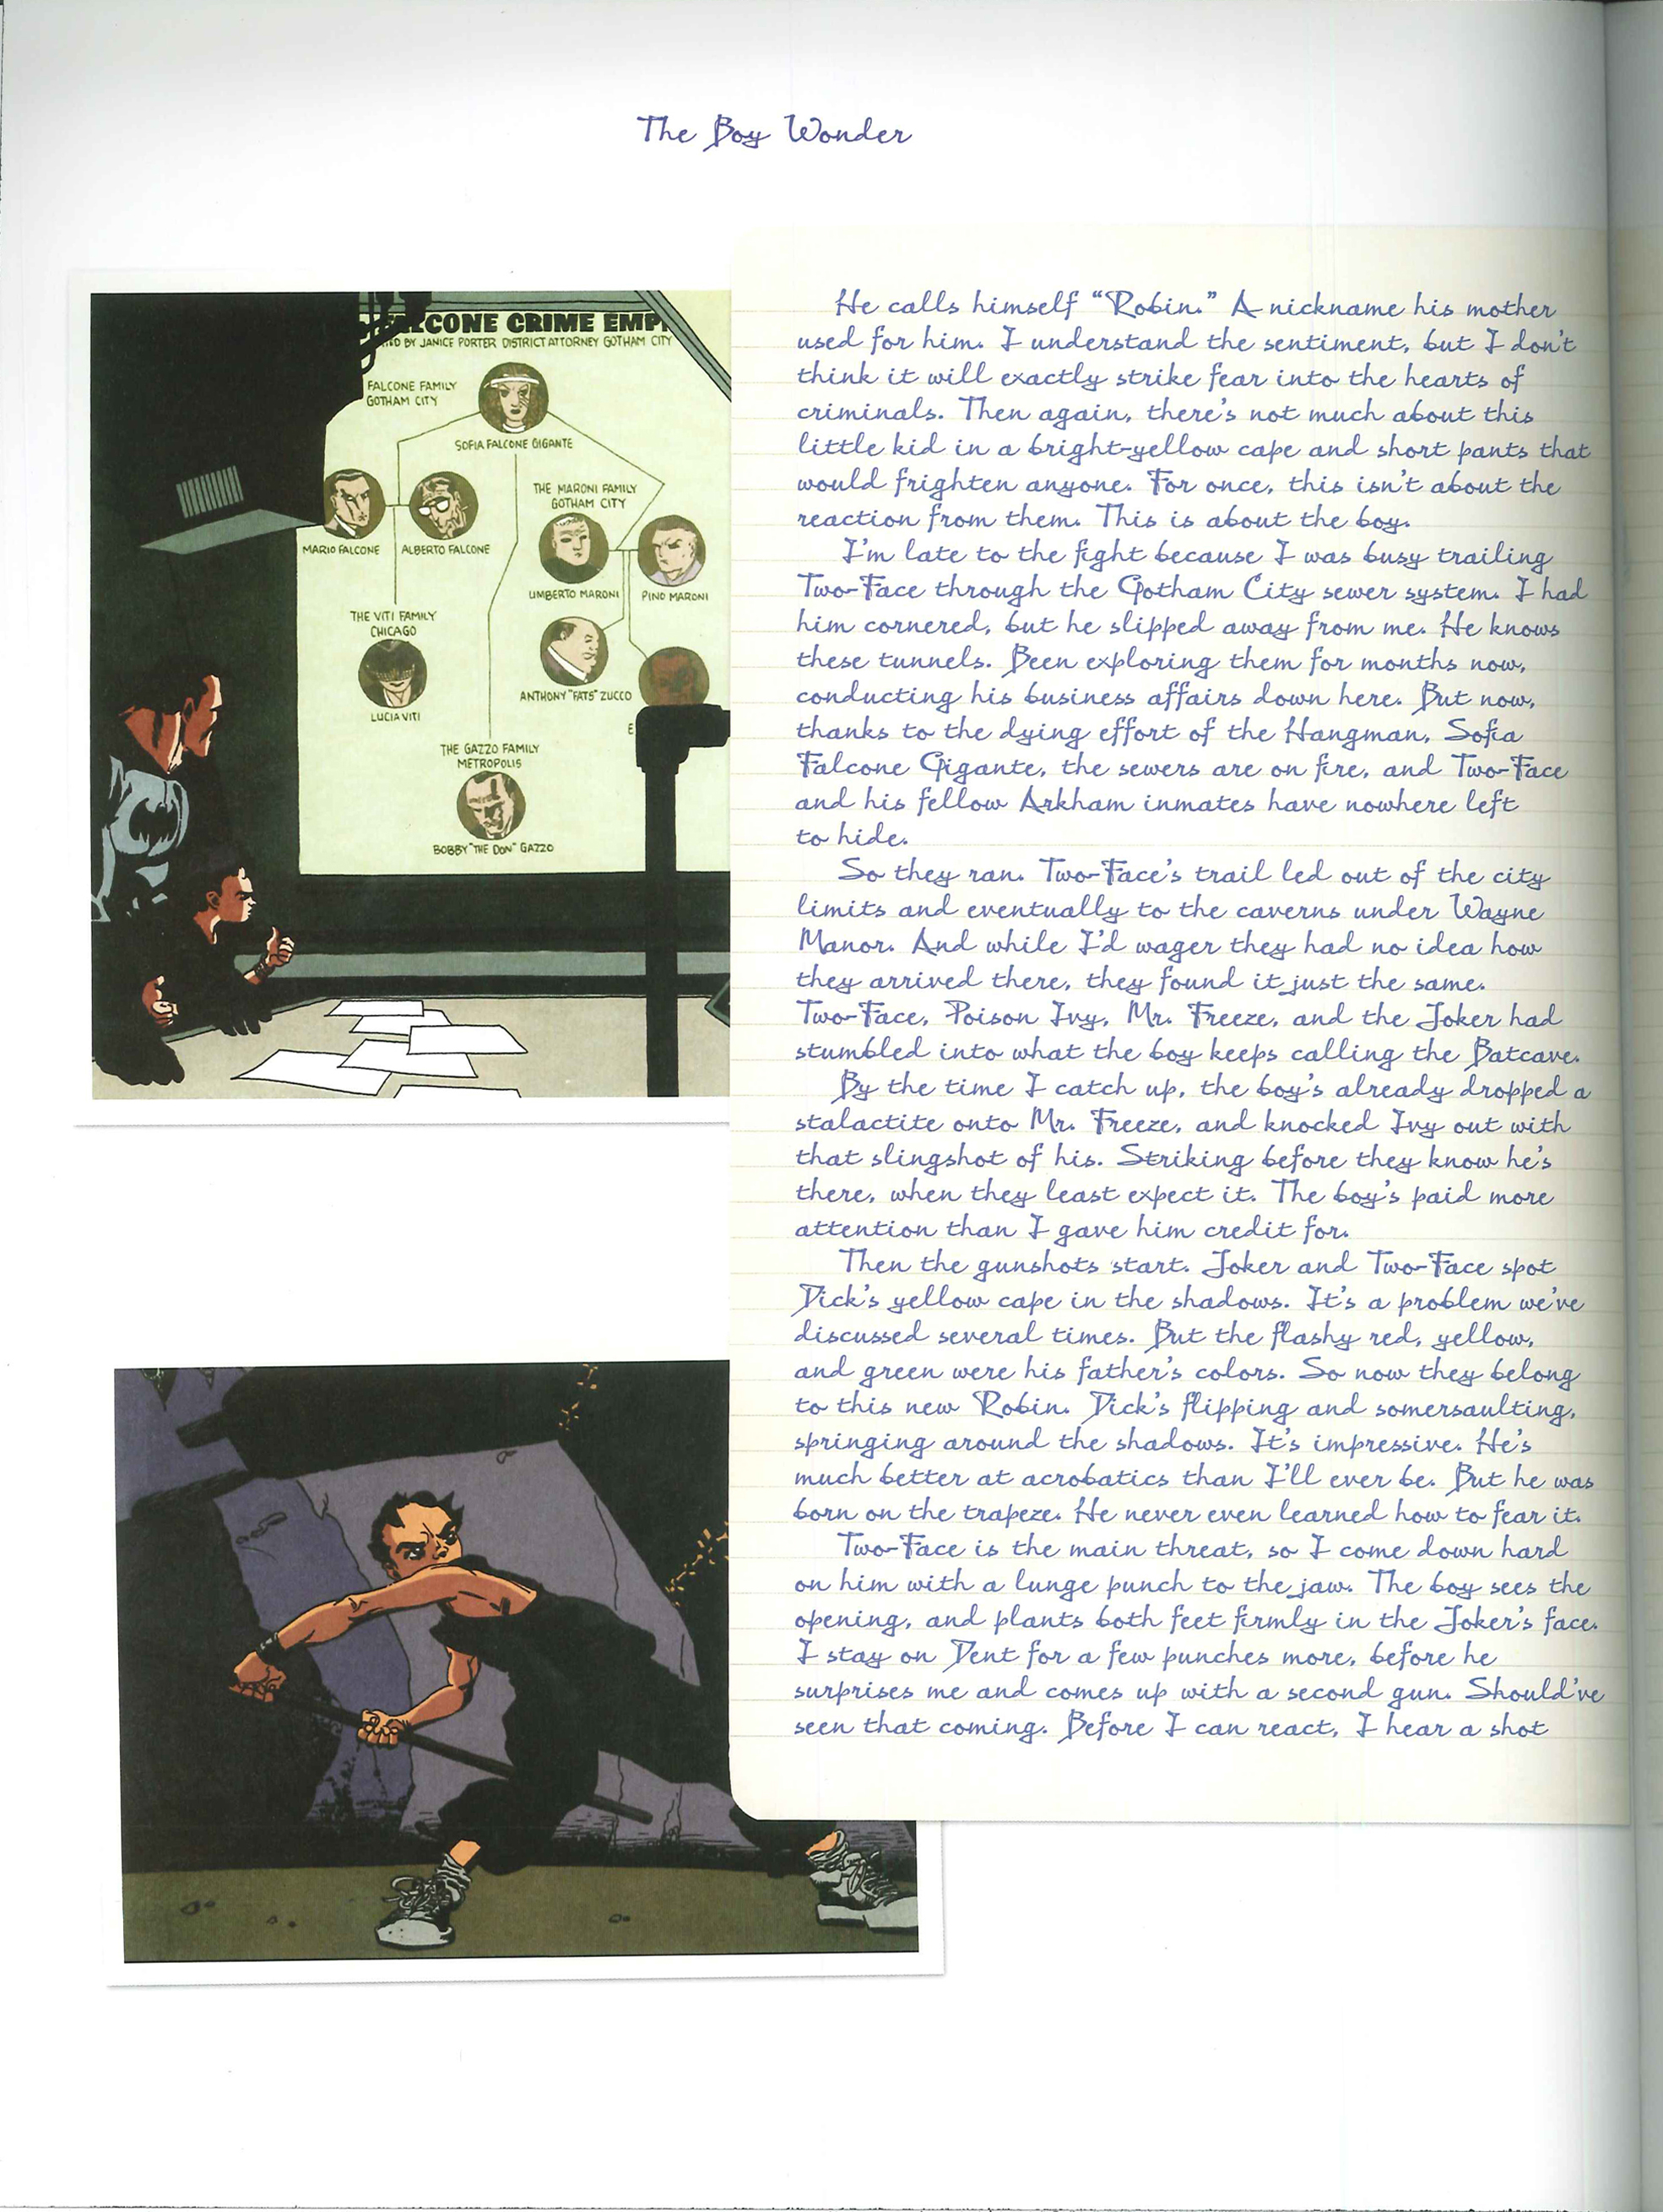 The Boy Wonder
CONE CRIME EMP
BY JANICE PORTER DISTRICT ATTORNEY GOTHAM CITY
FALCONE FAMILY
GOTHAM CITY
SOFIA FALCONE GIGANTE
THE MARONI FAMILY
GOTHAM CITY
MARIO FALCONE
ALBERTO FALCONE
UMBERTO MARONI
PINO MARONI
THE VITI FAMILY
CHICAGO
LUCIA VITI
ANTHONY "FATS" ZUCCO
E
THE GAZZO FAMILY
METROPOLIS
BOBBY "THE DON" GAZZO
He calls himself “Robin.” A nickname his mother
used for him. I understand the sentiment, but I don't
think it will exactly strike fear into the hearts of
criminals. Then again, there's not much about this
little kid in a bright-yellow cape and short pants that
would frighten anyone. For once, this isn't about the
reaction from them. This is about the boy.
I'm late to the fight because I was busy trailing
Two-Face through the Gotham City sewer system. I had
him cornered, but he slipped away from me. He knows
these tunnels. Been exploring them for months now,
conducting his business affairs down here. But now,
thanks to the dying effort of the Hangman, Sofia
Falcone Gigante, the sewers are on fire, and Two-Face
and his fellow Arkham inmates have nowhere left
to hide.
So they ran. Two-Face's trail led out of the city
limits and eventually to the caverns under Wayne
Manor. And while I'd wager they had no idea how
they arrived there, they found it just the same.
Two-Face, Poison Ivy, Mr. Freeze, and the Joker had
stumbled into what the boy keeps calling the Batcave.
By the time I catch up, the boy's already dropped a
stalactite onto Mr. Freeze, and knocked Ivy out with
that slingshot of his. Striking before they know he's
there, when they least expect it. The boy's paid more
attention than I gave him credit for.
Then the gunshots start. Joker and Two-Face spot
Dick's yellow cape in the shadows. It's a problem we've
discussed several times. But the flashy red, yellow,
and green were his father's colors. So now they belong
to this new Robin. Dick's flipping and somersaulting,
springing around the shadows. It's impressive. He's
much better at acrobatics than I'll ever be. But he was
born on the trapeze. He never even learned how to fear it.
Two-Face is the main threat, so I come down hard
on him with a lunge punch to the jaw. The boy sees the
opening, and plants both feet firmly in the Joker's face.
I stay on Dent for a few punches more, before he
surprises me and comes up with a second gun. Should've
seen that coming. Before I can react, I hear a shot